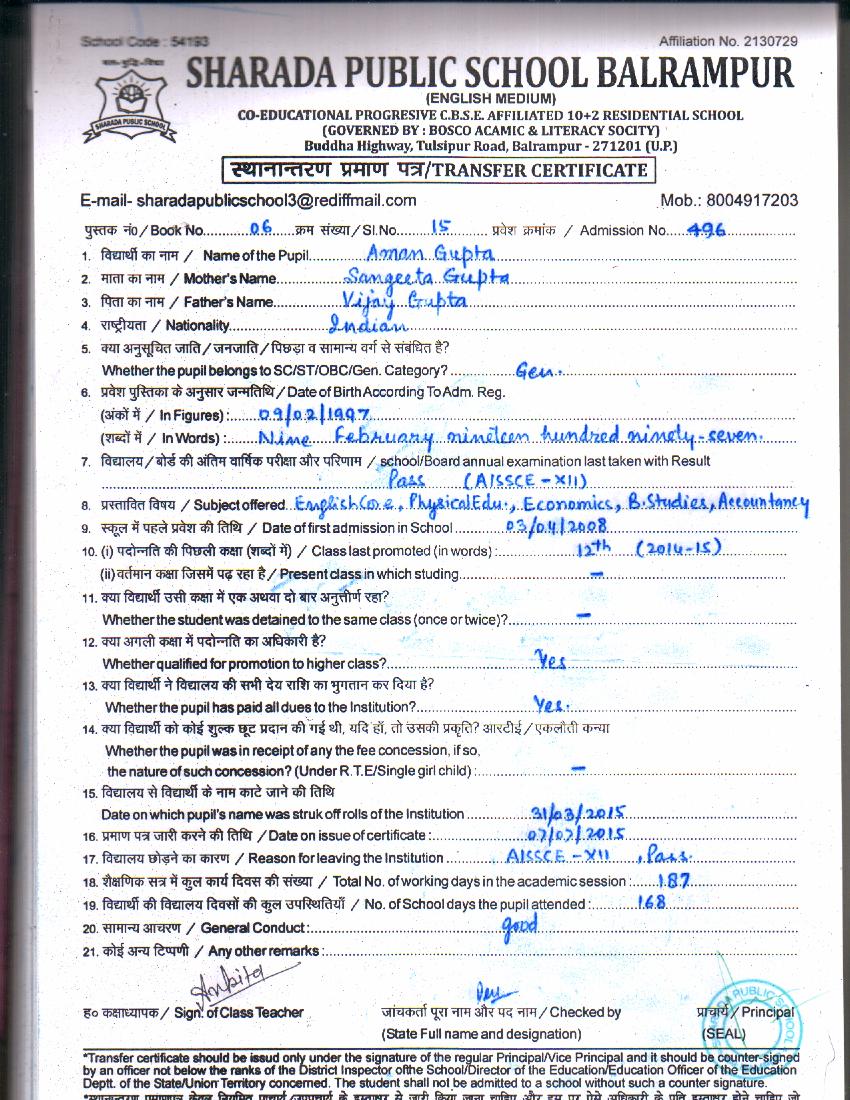 School Code : 54193 Affiliation No. 2130729
SHARADA PUBLIC SCHOOL
SHARADA PUBLIC SCHOOL BALRAMPUR
(ENGLISH MEDIUM)
CO-EDUCATIONAL PROGRESIVE C.B.S.E. AFFILIATED 10+2 RESIDENTIAL SCHOOL
(GOVERNED BY : BOSCO ACAMIC & LITERACY SOCITY)
Buddha Highway, Tulsipur Road, Balrampur - 271201 (U.P.)
स्थानान्तरण प्रमाण पत्र/TRANSFER CERTIFICATE
E-mail- sharadapublicschool3@rediffmail.com Mob.: 8004917203
पुस्तक नं०/Book No. 06 क्रम संख्या/Sl.No. 15 प्रवेश क्रमांक / Admission No. 496
1. विद्यार्थी का नाम / Name of the Pupil Aman Gupta
2. माता का नाम / Mother's Name Sangeeta Gupta
3. पिता का नाम / Father's Name Vijay Gupta
4. राष्ट्रीयता / Nationality Indian
5. क्या अनुसूचित जाति/जनजाति/पिछड़ा व सामान्य वर्ग से संबंधित है?
Whether the pupil belongs to SC/ST/OBC/Gen. Category? Gen.
6. प्रवेश पुस्तिका के अनुसार जन्मतिथि/Date of Birth According To Adm. Reg.
(अंकों में / In Figures) : 09/02/1997
(शब्दों में / In Words) : Nine February nineteen hundred ninety-seven.
7. विद्यालय/बोर्ड की अंतिम वार्षिक परीक्षा और परिणाम / school/Board annual examination last taken with Result
Pass (AISSCE - XII)
8. प्रस्तावित विषय / Subject offered English Core, Physical Edu., Economics, B.Studies, Accountancy
9. स्कूल में पहले प्रवेश की तिथि / Date of first admission in School 03/04/2008
10. (i) पदोन्नति की पिछली कक्षा (शब्दों में) / Class last promoted (in words) : 12th (2014-15)
(ii) वर्तमान कक्षा जिसमें पढ़ रहा है / Present class in which studing –
11. क्या विद्यार्थी उसी कक्षा में एक अथवा दो बार अनुत्तीर्ण रहा?
Whether the student was detained to the same class (once or twice)? –
12. क्या अगली कक्षा में पदोन्नति का अधिकारी है?
Whether qualified for promotion to higher class? Yes
13. क्या विद्यार्थी ने विद्यालय की सभी देय राशि का भुगतान कर दिया है?
Whether the pupil has paid all dues to the Institution? Yes.
14. क्या विद्यार्थी को कोई शुल्क छूट प्रदान की गई थी, यदि हाँ, तो उसकी प्रकृति? आरटीई / एकलौती कन्या
Whether the pupil was in receipt of any the fee concession, if so,
the nature of such concession? (Under R.T.E/Single girl child) : –
15. विद्यालय से विद्यार्थी के नाम काटे जाने की तिथि
Date on which pupil's name was struk off rolls of the Institution 31/03/2015
16. प्रमाण पत्र जारी करने की तिथि / Date on issue of certificate : 07/07/2015
17. विद्यालय छोड़ने का कारण / Reason for leaving the Institution AISSCE - XII , Pass.
18. शैक्षणिक सत्र में कुल कार्य दिवस की संख्या / Total No. of working days in the academic session : 187
19. विद्यार्थी की विद्यालय दिवसों की कुल उपस्थितियाँ / No. of School days the pupil attended : 168
20. सामान्य आचरण / General Conduct : good
21. कोई अन्य टिप्पणी / Any other remarks :
Ankita
ह० कक्षाध्यापक / Sign. of Class Teacher जांचकर्ता पूरा नाम और पद नाम / Checked by प्राचार्य / Principal
(State Full name and designation) (SEAL)
*Transfer certificate should be issud only under the signature of the regular Principal/Vice Principal and it should be counter-signed
by an officer not below the ranks of the District Inspector ofthe School/Director of the Education/Education Officer of the Education
Deptt. of the State/Union Territory concerned. The student shall not be admitted to a school without such a counter signature.